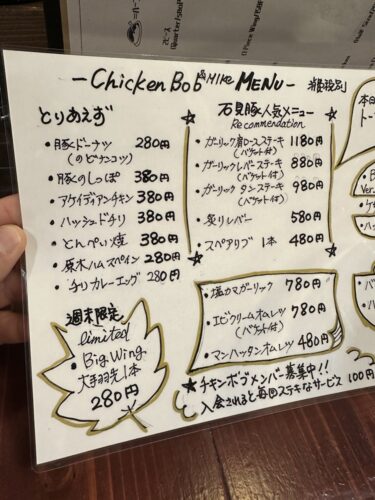 - Chicken Bob & MIKE MENU -
とりあえず
・豚ドーナツ 280円
(のどナンコツ)
・豚のしっぽ 380円
・アケイディアンチキン 380円
・ハッシュドチリ 380円
・とんぺい焼 380円
・原木ハム スペイン 280円
・チリカレーエッグ 280円
週末限定
limited
・Big Wing
大手羽先1本
280円
石見豚人気メニュー
Recommendation
・ガーリック肩ロースステーキ 1180円
(バケット付)
・ガーリックレバーステーキ 880円
(バケット付)
・ガーリック タンステーキ 980円
(バケット付)
・炙りレバー 580円
・スペアリブ 1本 480円
・塩カマガーリック 780円
・エビクリームオムレツ 780円
(バケット付)
・マンハッタンオムレツ 480円
★チキンボブメンバー募集中!!
入会されると毎回ステキなサービス 100円
本日